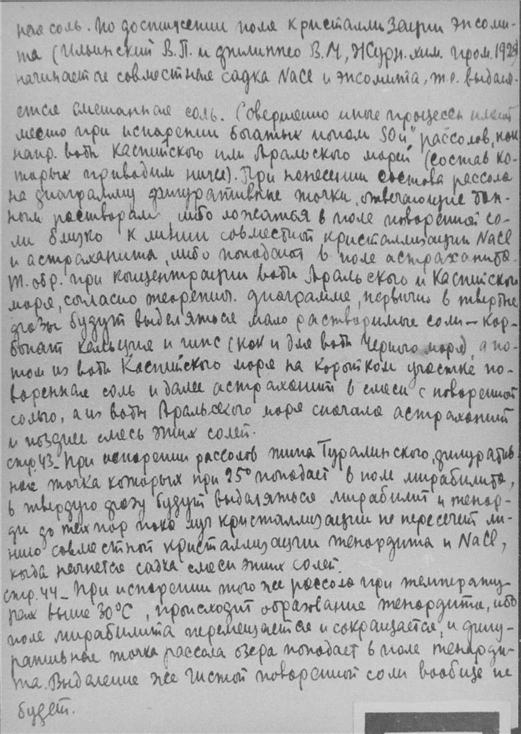 ная соль. По достижении поля кристаллизации эпсоми-
та (Ильинский В.П. и Филиппео В.М, Журн. хим. пром. 1928)
начинается совместная садка NaCl и эпсомита, т.е. выделя-
ется смешанная соль. Совершенно иные процессы имеют
место при испарении богатых ионом SO4" рассолов, как
напр. воды Каспийского или Аральского морей (состав ко-
торых приводим ниже). При нанесении состава рассола
на диаграмму фигуративные точки, отвечающие дан-
ным растворам либо ложатся в поле поваренной со-
ли близко к линии совместной кристаллизации NaCl
и астраханита, либо попадают в поле астраханита.
Т. обр. при концентрации воды Аральского и Каспийского
моря, согласно теоретич. диаграмме, первыми в твердые
фазы будут выделяться мало растворимые соли – кар-
бонат кальция и гипс (как и для воды Черного моря), а по-
том из воды Каспийского моря на коротком участке по-
варенная соль и далее астраханит в смеси с поваренной
солью, а из воды Аральского моря сначала астраханит
и позднее смесь этих солей.
стр. 43 – При испарении рассолов типа Туралинского, фигуратив-
ная точка которых при 25° попадает в поле мирабилита,
в твердую фазу будут выделяться мирабилит и тенар-
дит до тех пор пока луч кристаллизации не пересечет ли-
нию совместной кристаллизации тенардита и NaCl,
когда начнется садка смеси этих солей.
стр. 44 – При испарении того же рассола при температу-
рах выше 30°C, происходит образование тенардита, ибо
поле мирабилита перемещается и сокращается, и фигу-
ративная точка рассола озера попадает в поле тенарди-
та. Выделение же чистой поваренной соли вообще не
будет.